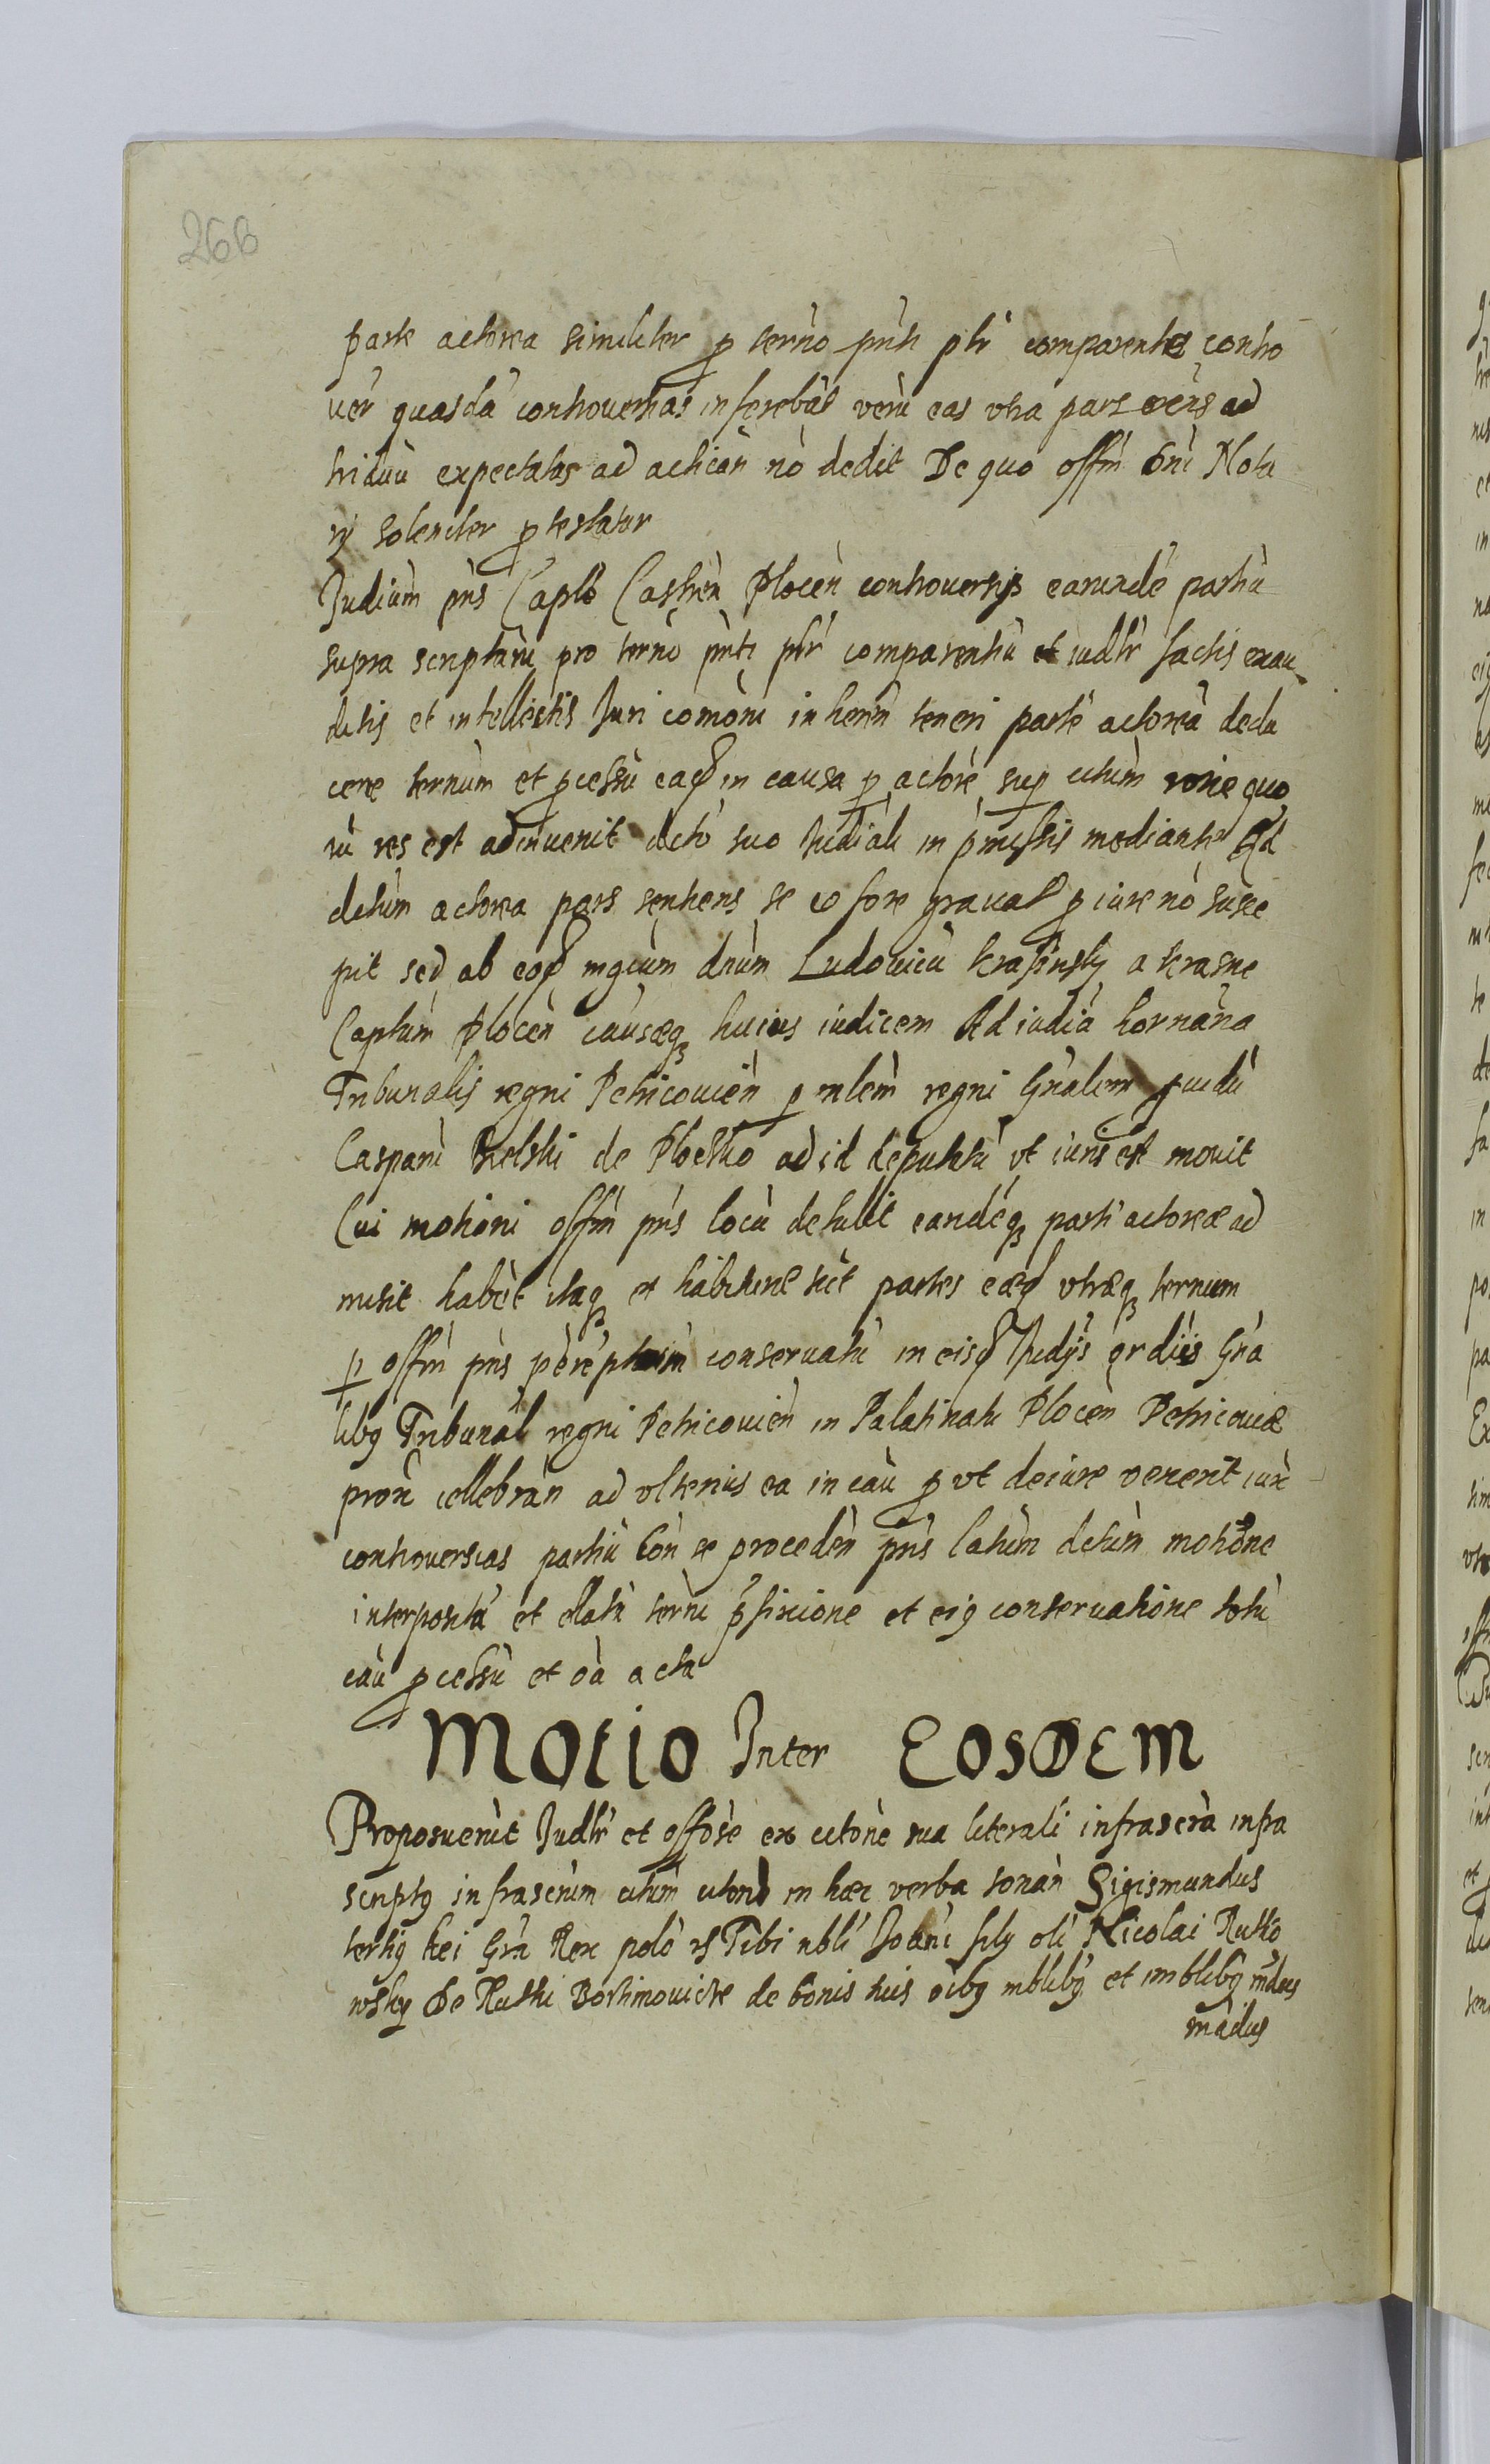 266
parte actorea similiter p termo pnti pltr comparente contro
uer quasda controuersias inferebat veru eas vtra pars oeres ad
triduu expectatas ad actican no dedit De quo offm bni Nota
rij solenciter ptestatur
Judium pns Caplo Castren Plocen controuersijs earunde partiu
supra scriptaru pro termo pnti pltr comparentiu et iudltr factis exau
ditis et intellectis Juri comoni inheren teneri parte actorea dedu
cere ternum et pcessu ead in causa p actore sup citum rone quo
ru res est adinuenit dcto suo Judiali in pmissis mediante Qd
dctum actorea pars sentiens se eo fore grauat p iure no susce
pit sed ab eod mgcum dnum Ludouicu Krasinsky a Krasne
Captum Plocen causæq huius iudicem Ad iudia hornana
Tribunalis regni Petricouien p mlem regni Gnalem puidu
Casparu Bielski de Ploczko ad id deputatu vt iuris est mouit
Cui motioni offm pns locu detulit eandeq parti actoreæ ad
misit habet itaq et habiture sut partes eæd vtræq ternum
p offm pns pereptorium conseruatu in eisd Judijs ordiis Gna
libq Tribunal regni Petricouien in Palatinatu Plocen Petricouiæ
pron cellebran ad vlterius ea in cau p vt deiure venerit iux
controuersias partiu con se proceden pns latum dctum motione
interposita et ellata terni pfixione et eiq conseruatione totu
cau pcessu et oa acta
Motio Inter EOSDEM
Proposuerut Judltr et offose ex citone sua literali infrascra infra
scriptq infrascrum citum citond in hæc verba sonan Sigismundus
tertiq Dei Gra Rex polo rs Tibi nbli Joani filij oli Nicolai Rutko
wsky De Rutki Bortimouicze de bonis tuis oibq mblibq et imblibq mdus
madus